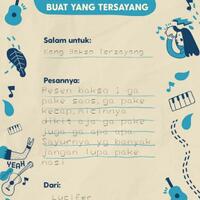 BUAT YANG TERSAYANG
Salam untuk:
Kang Bakso Tersayang
Pesannya:
Pesen bakso 1 ga
pake saos, ga pake
kecap, Micinnya
dikit aja ga pake
juga ga apa apa
Sayurnya yg banyak
jangan lupa pake
nasi
YEAH
Dari:
Lucifer